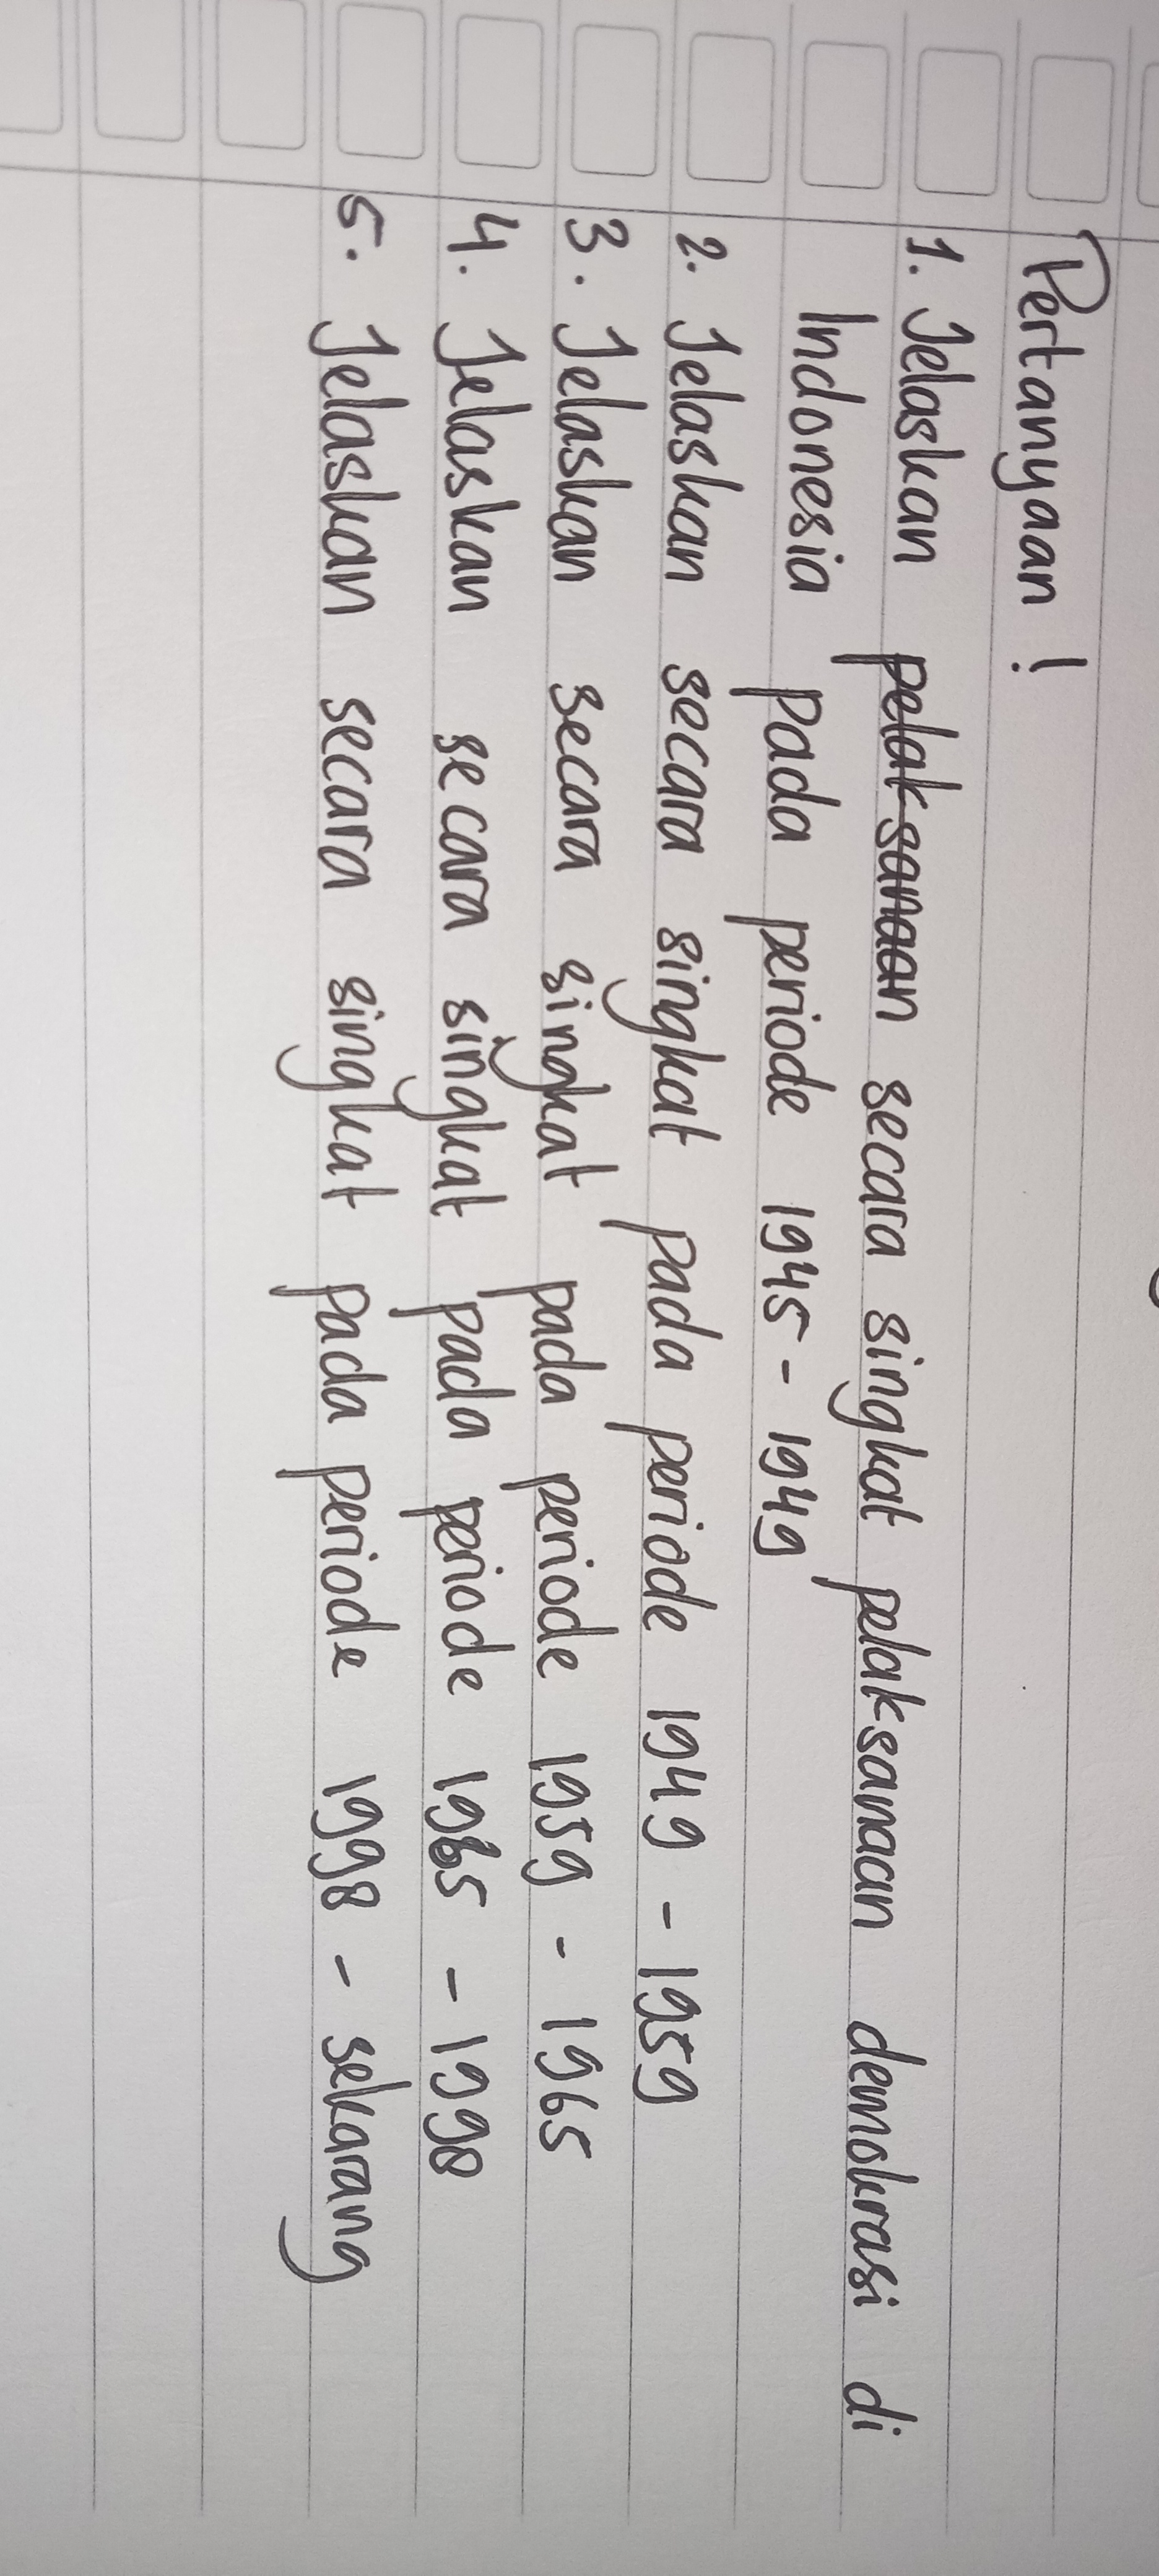 Pertanyaan !
1. Jelaskan pelaksanaan secara singkat pelaksanaan demokrasi di
Indonesia pada periode 1945 - 1949
2. Jelaskan secara singkat pada periode 1949 - 1959
3. Jelaskan secara singkat pada periode 1959 - 1965
4. Jelaskan secara singkat pada periode 1965 - 1998
5. Jelaskan secara singkat pada periode 1998 - sekarang